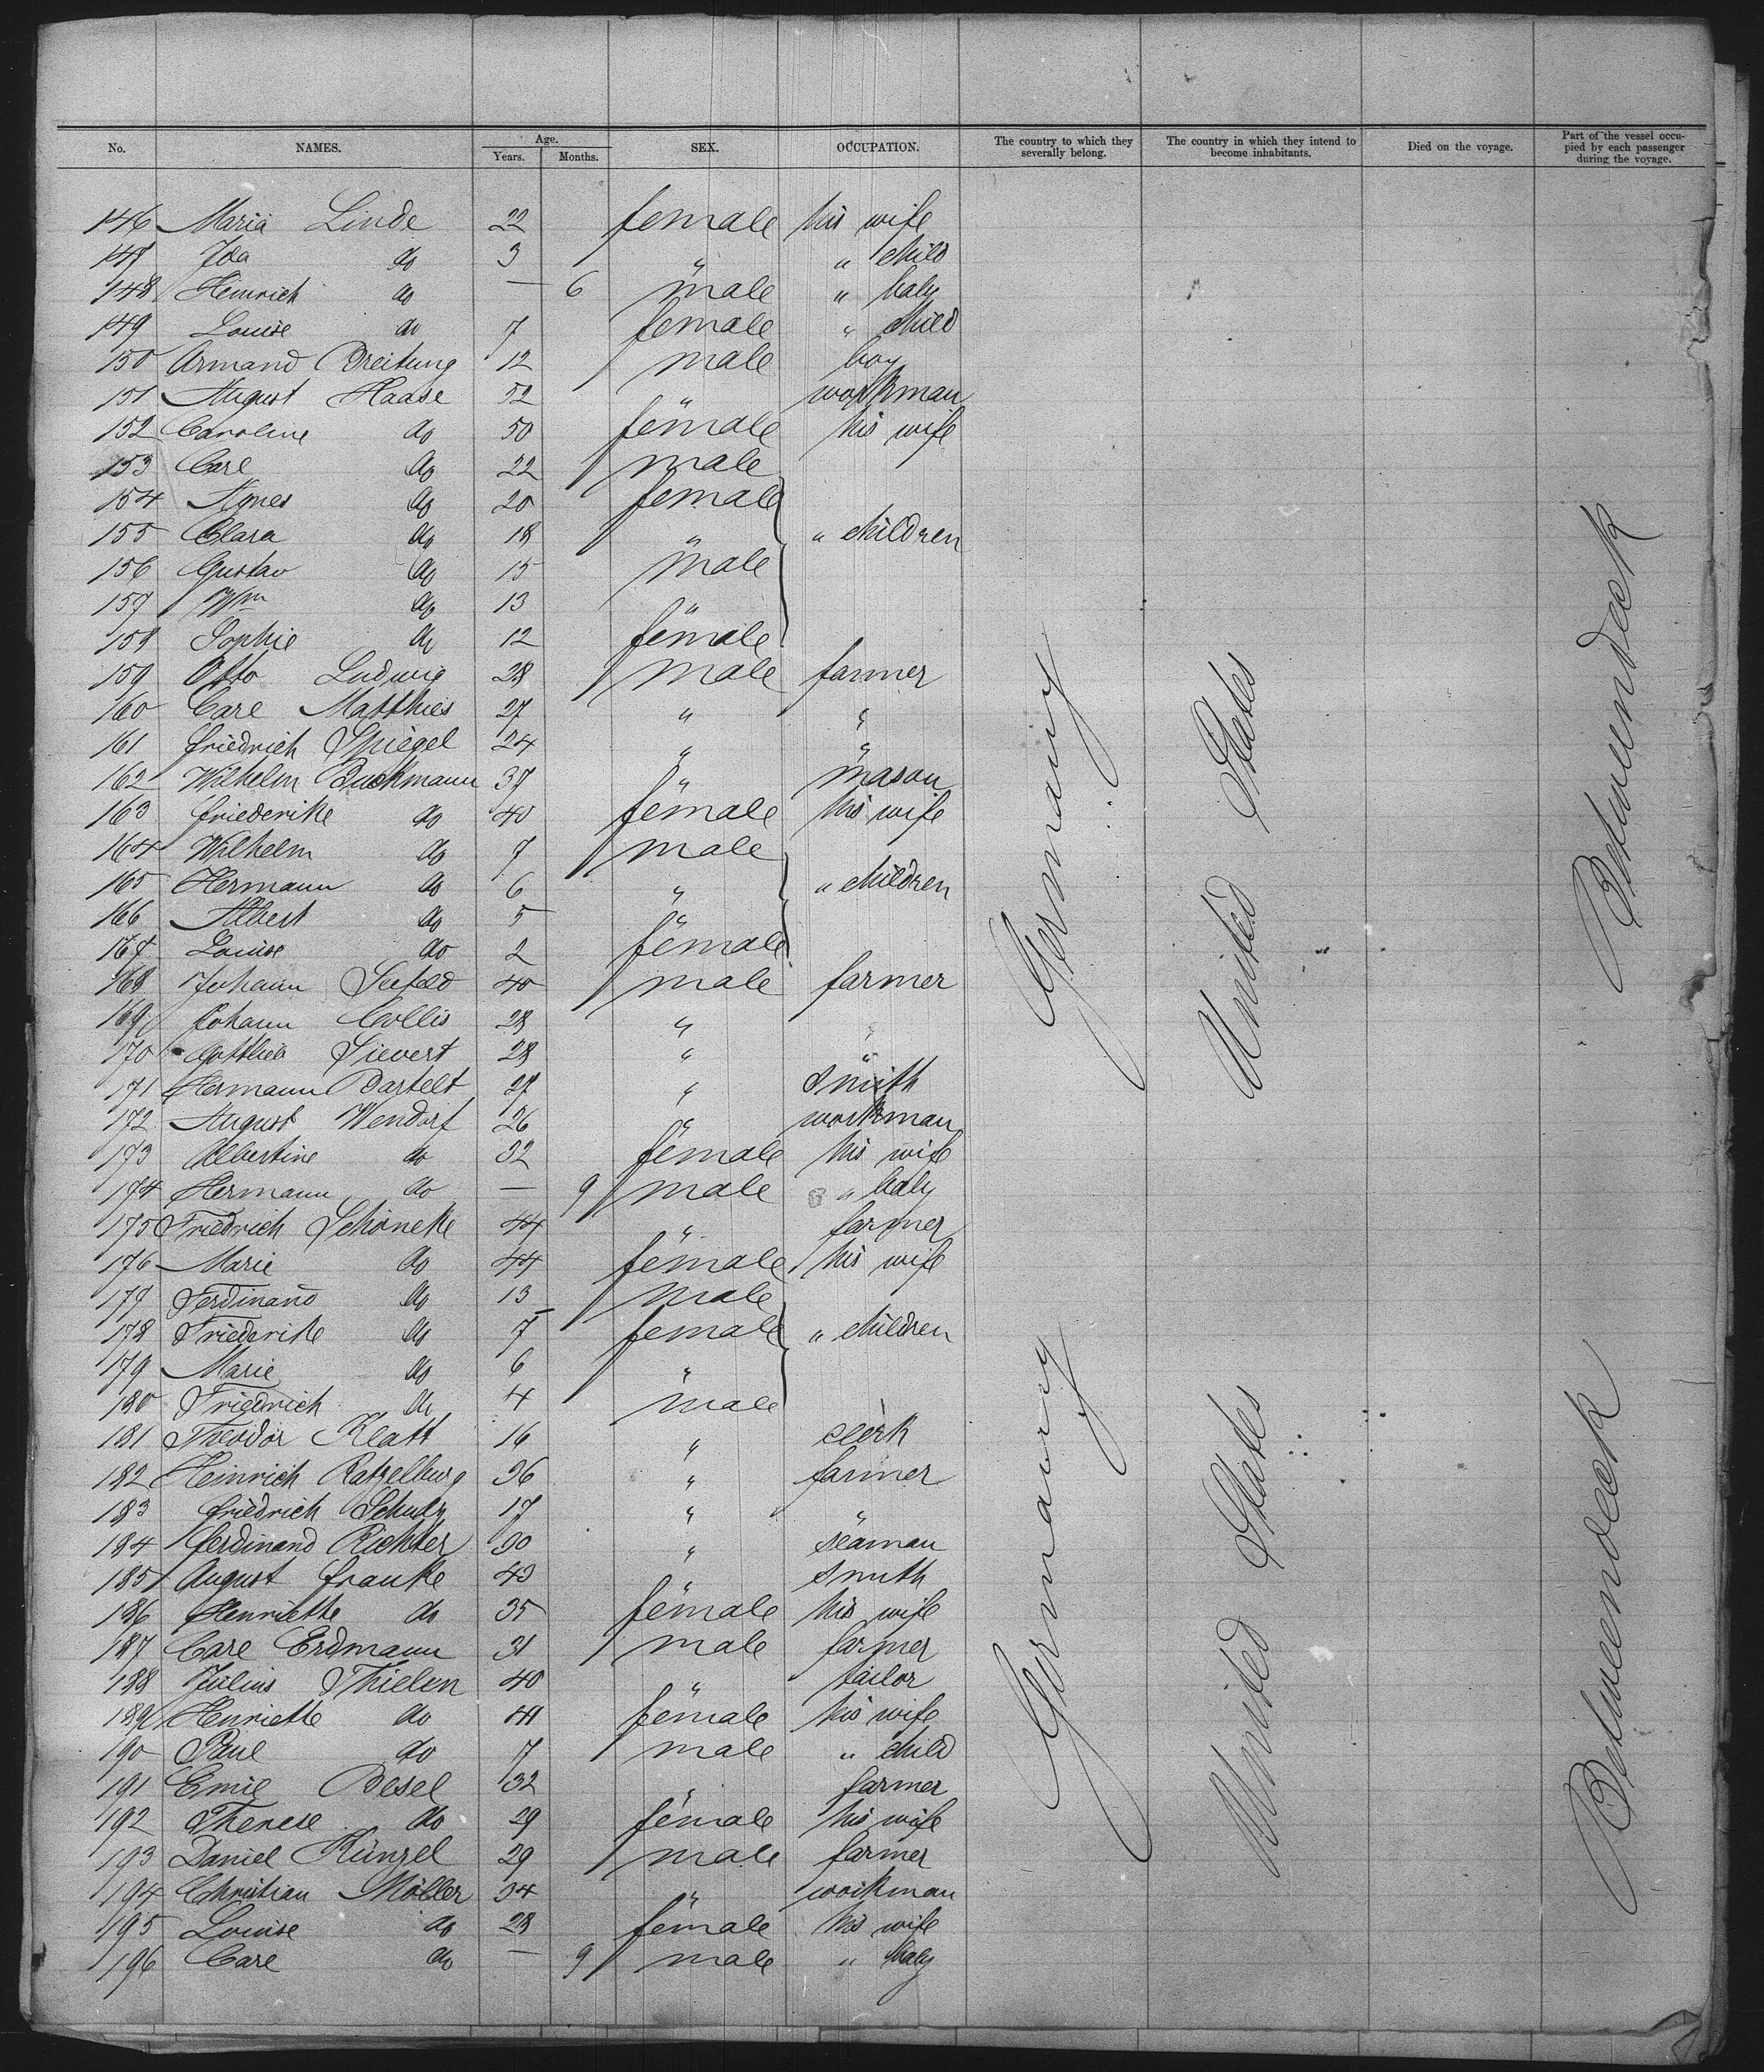 No. NAMES. Age. Years. Months. SEX. OCCUPATION. The country to which they severally belong. The country in which they intend to become inhabitants. Died on the voyage. Part of the vessel occupied by each passenger during the voyage.
146 Maria Linde 22 female his wife
147 Ida do 3 " " child
148 Heinrich do — 6 male " baby
149 Louise do 7 female " child
150 Armand Breitung 12 male boy
151 August Haase 52 " workman
152 Caroline do 50 female his wife
153 Carl do 22 male
154 Agnes do 20 female
155 Clara do 18 " " children
156 Gustav do 15 male
157 Wm do 13 "
158 Sophie do 12 female
159 Otto Ludwig 28 male farmer
160 Carl Matthies 27 " "
161 Friedrich Spiegel 24 " "
162 Wilhelm Buckmann 37 " mason
163 Friederike do 40 female his wife
164 Wilhelm do 7 male
165 Hermann do 6 " " children
166 Albert do 5 "
167 Louise do 2 female
168 Johann Seefeld 40 male farmer
169 Johann Collis 28 " "
170 Gottlieb Sievert 28 " "
171 Hermann Bartelt 27 " smith
172 August Wendorf 26 " workman
173 Albertine do 32 female his wife
174 Hermann do — 9 male " baby
175 Friedrich Schöneke 44 " farmer
176 Marie do 44 female his wife
177 Ferdinand do 13 male
178 Friederike do 7 female " children
179 Marie do 6 "
180 Friedrich do 4 male
181 Theodor Klatt 16 " clerk
182 Heinrich Ratzelburg 36 " farmer
183 Friedrich Schulz 17 " "
184 Ferdinand Richter 30 " seaman
185 August Franke 43 " smith
186 Henriette do 35 female his wife
187 Carl Erdmann 31 male farmer
188 Julius Thielen 40 " tailor
189 Henriette do 41 female his wife
190 Paul do 7 male " child
191 Emil Besel 32 " farmer
192 Therese do 29 female his wife
193 Daniel Künzel 29 male farmer
194 Christian Möller 34 " workman
195 Louise do 28 female his wife
196 Carl do — 9 male " baby
Germany
United States
Betweendeck
Germany
United States
Betweendeck